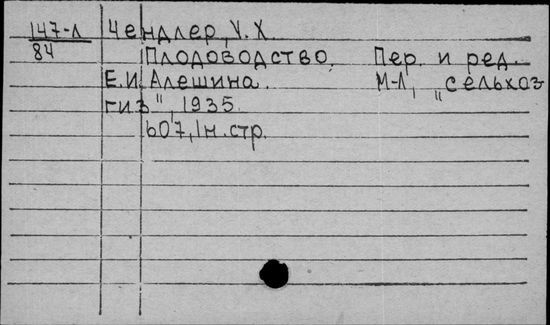 147-л Чендлер, У. Х
84 Плодоводство. Пер. и ред.
Е.И. Алешина. М-Л, „сельхоз
гиз", 1935.
607, 1н. стр.